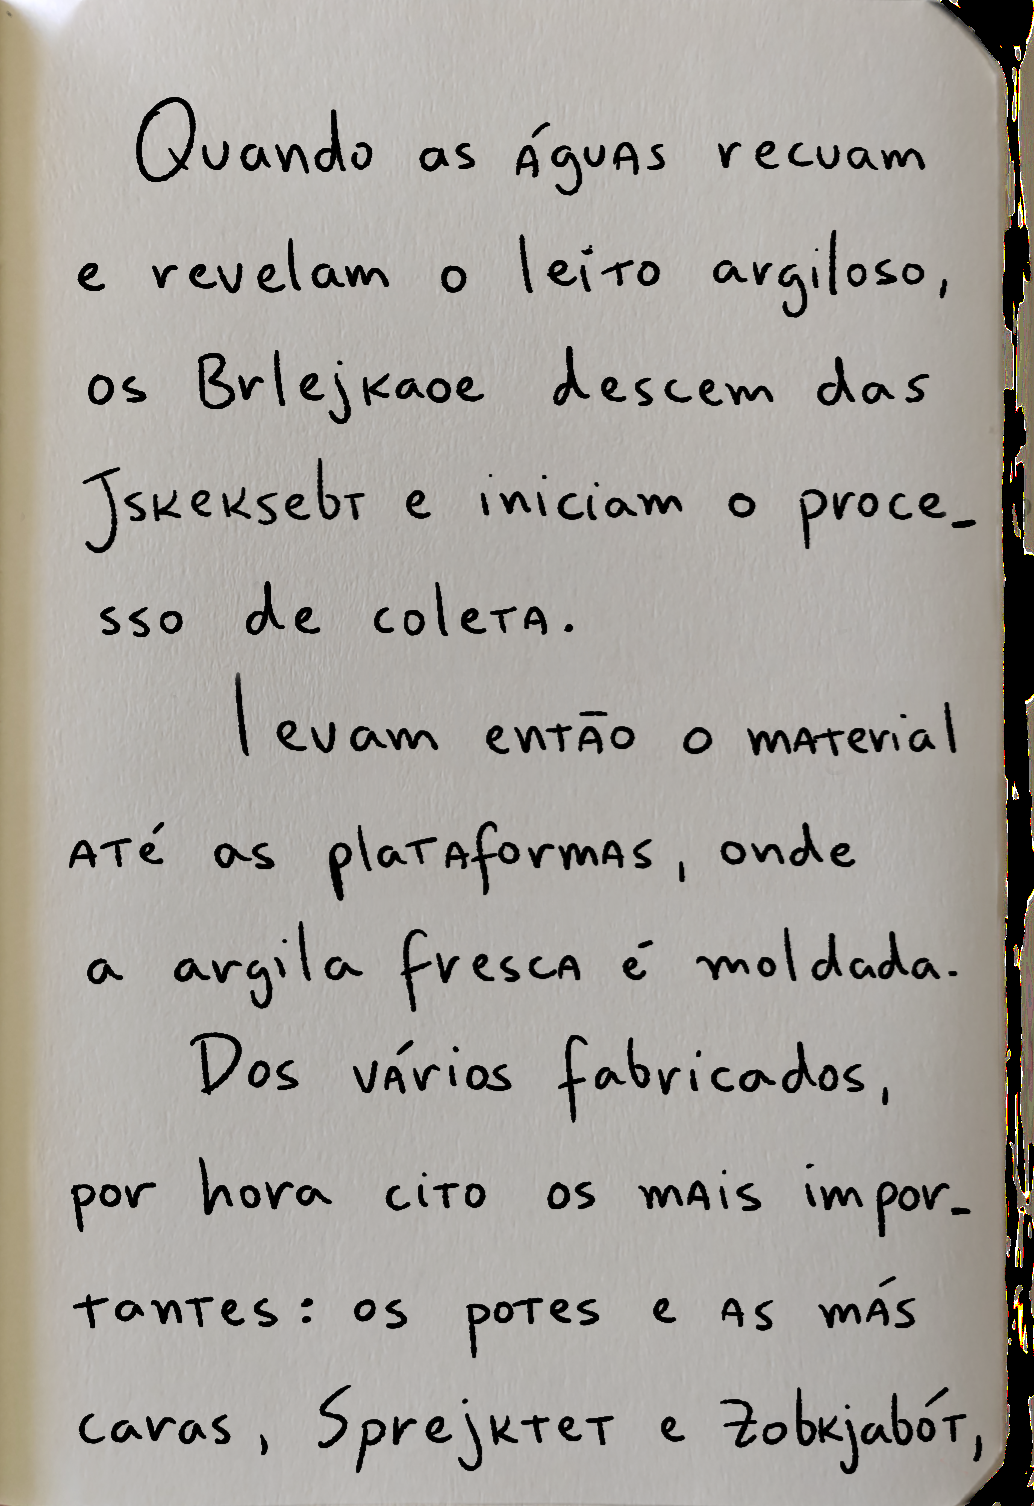 Quando as águas recuam
e revelam o leito argiloso,
os Brlejkaoe descem das
Jskeksebt e iniciam o proce-
sso de coleta.
levam então o material
até as plataformas, onde
a argila fresca é moldada.
Dos vários fabricados,
por hora cito os mais impor-
tantes: os potes e as más
caras, Sprejktet e Zobkjabót,